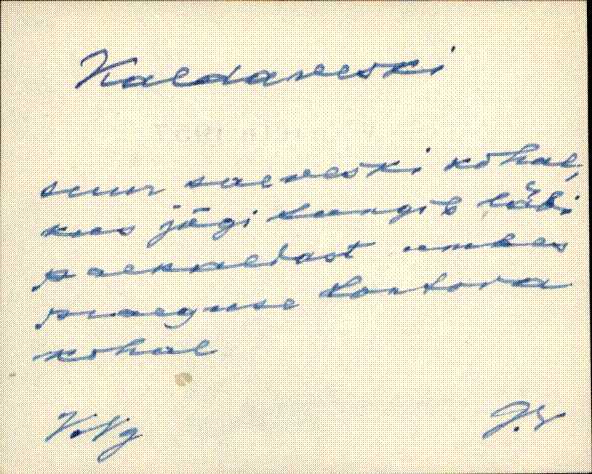 Kaldaveski
suur saeveski kohal,
kus jõgi tungib läbi
paekaldast umbes
praeguse kontora
kohal
V.Ng J.V